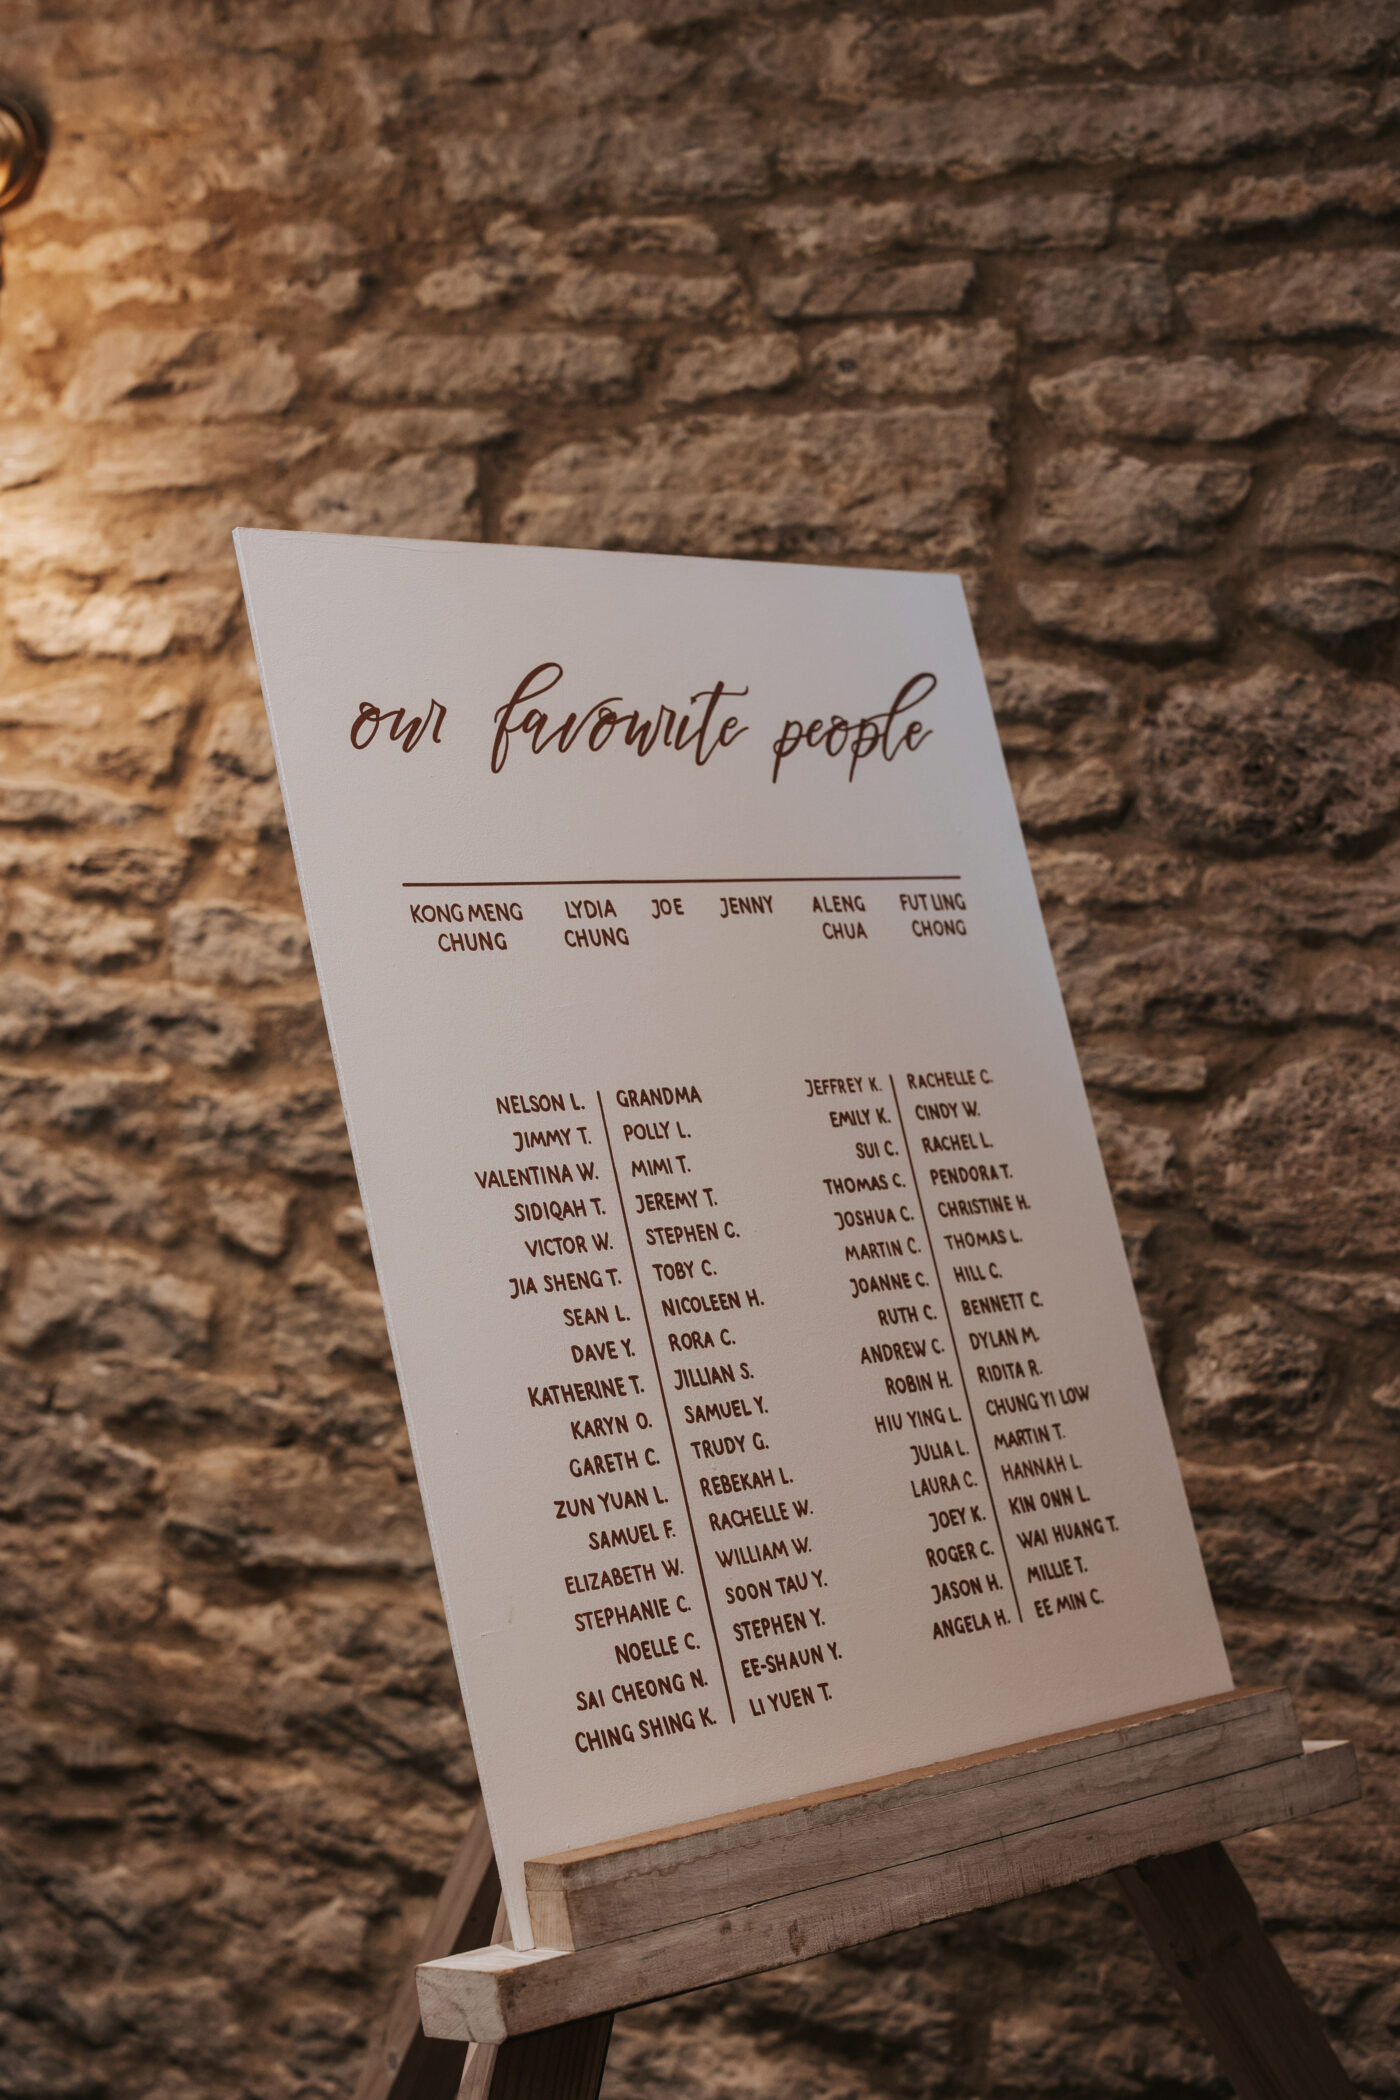 our favourite people
KONG MENG LYDIA JOE JENNY ALENG FUT LING
CHUNG CHUNG CHUA CHONG
NELSON L. GRANDMA
JIMMY T. POLLY L.
VALENTINA W. MIMI T.
SIDIQAH T. JEREMY T.
VICTOR W. STEPHEN C.
JIA SHENG T. TOBY C.
SEAN L. NICOLEEN H.
DAVE Y. RORA C.
KATHERINE T. JILLIAN S.
KARYN O. SAMUEL Y.
GARETH C. TRUDY G.
ZUN YUAN L. REBEKAH L.
SAMUEL F. RACHELLE W.
ELIZABETH W. WILLIAM W.
STEPHANIE C. SOON TAU Y.
NOELLE C. STEPHEN Y.
SAI CHEONG N. EE-SHAUN Y.
CHING SHING K. LI YUEN T.
JEFFREY K. RACHELLE C.
EMILY K. CINDY W.
SUI C. RACHEL L.
THOMAS C. PENDORA T.
JOSHUA C. CHRISTINE H.
MARTIN C. THOMAS L.
JOANNE C. HILL C.
RUTH C. BENNETT C.
ANDREW C. DYLAN M.
ROBIN H. RIDITA R.
HIU YING L. CHUNG YI LOW
JULIA L. MARTIN T.
LAURA C. HANNAH L.
JOEY K. KIN ONN L.
ROGER C. WAI HUANG T.
JASON H. MILLIE T.
ANGELA H. EE MIN C.